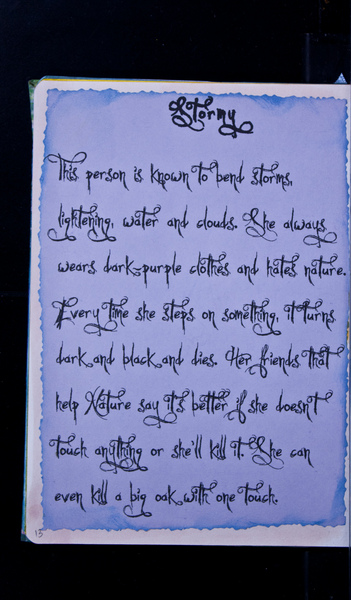 Stormy
This person is known to bend storms,
lightening, water and clouds. She always
wears dark-purple clothes and hates nature.
Every time she steps on something, it turns
dark and black and dies. Her friends that
help Nature say it's better if she doesn't
touch anything or she'll kill it. She can
even kill a big oak with one touch.
13